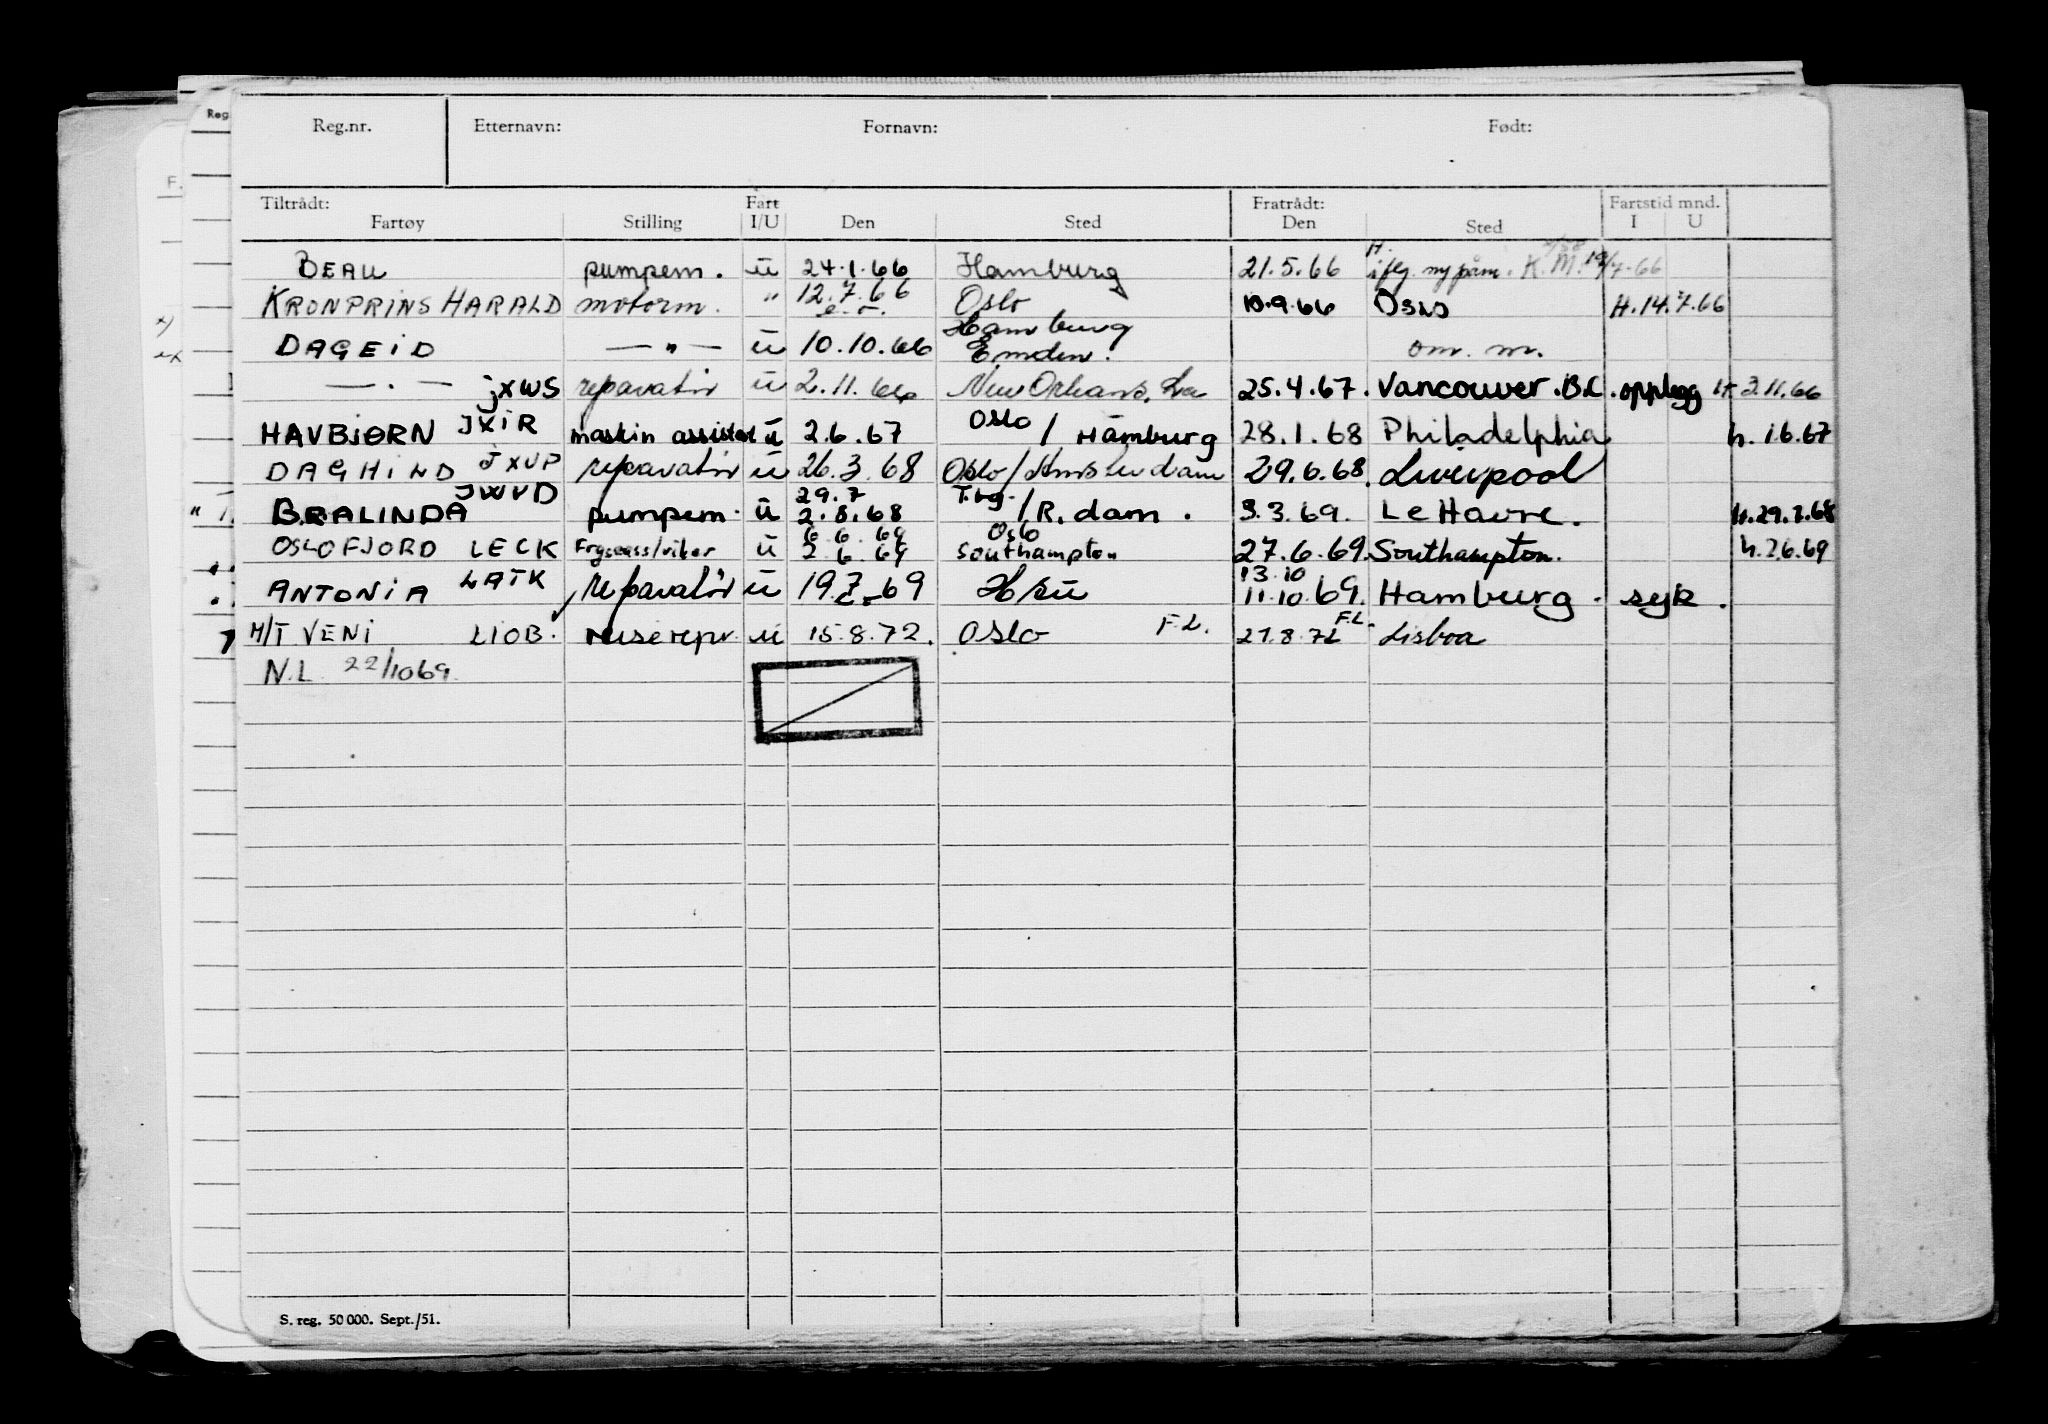 Reg.nr. Etternavn: Fornavn: Født:
Tiltrådt: Fart Fratrådt: Fartstid mnd.
Fartøy Stilling I/U Den Sted Den Sted I U
BEAU pumpem. u 24.1.66 Hamburg 21.5.66 K.M. 19/7-66
KRONPRINS HARALD motorm. " 12.7.66 Oslo 10.9.66 Oslo H.14.7.66
DAGEID — " — u 10.10.66 Hamburg Emden. om. m.
— . — JXWS reparatør u 2.11.66 New Orleans, La 25.4.67. Vancouver. B.C. opplegg H 3.11.66
HAVBJØRN JXIR maskin assistent u 2.6.67 Oslo / Hamburg 28.1.68 Philadelphia h. 1.6.67
DAGHILD JXVP reparatør u 26.3.68 Oslo/Amsterdam 29.6.68. Liverpool
BRALINDA JWVD pumpem. u 29.7 2.8.68 Tbg. /R.dam. 3.3.69. Le Havre. h.29.7.68
OSLOFJORD LECK u 6.6.69 2.6.69 Oslo Southampton 27.6.69. Southampton. h.2.6.69
ANTONIA LATK reparatør u 19.7.69 13.10 11.10.69. Hamburg. syk.
M/T VENI LIOB. reiserepr. u 15.8.72. Oslo F.L. 27.8.72 F.L. Lisboa
N.L. 22/10 69.
S. reg. 50 000. Sept./51.